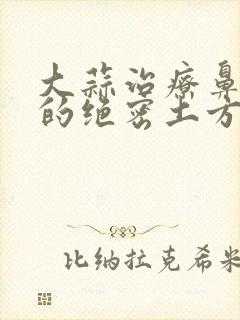 大蒜治疗鼻
的绝密土方
比纳拉克希米